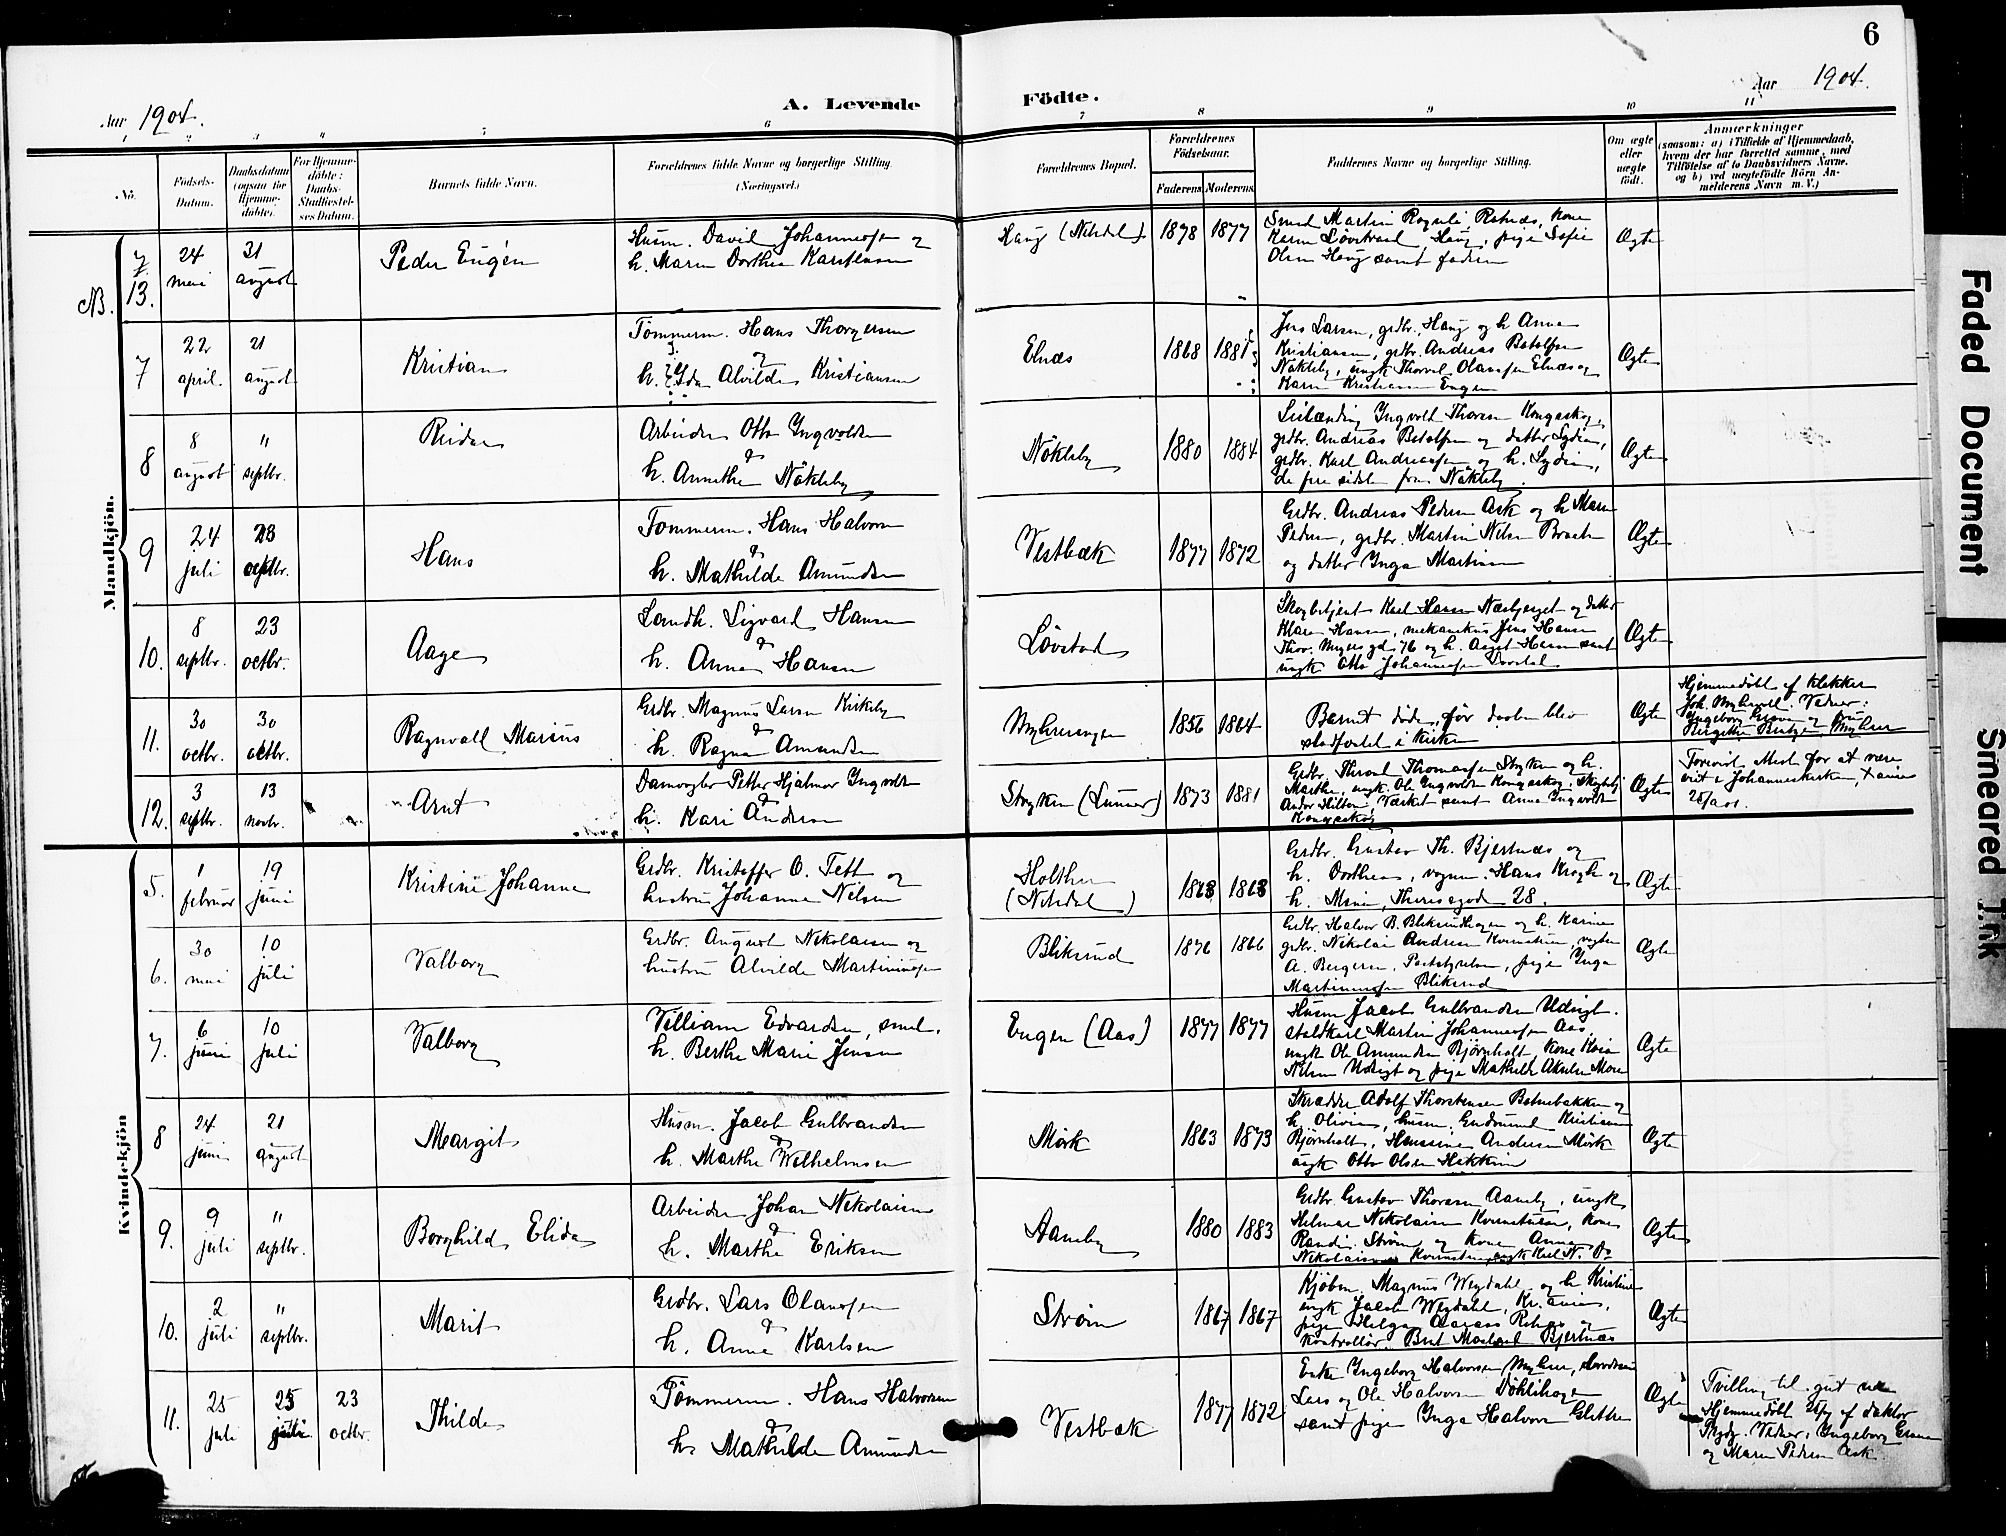 6
Aar 1904.
A. Levende Födte.
Aar 1904.
1 2 3 4 5 6 7 8 9 10 11
No.
Födsels-Datum.
Daabsdatum (ogsaa for Hjemmedöbte).
For Hjemmedöbte: Daabs-Stadfæstelses Datum.
Barnets fulde Navn.
Forældrenes fulde Navne og borgerlige Stilling. (Næringsvei.)
Forældrenes Bopæl.
Forældrenes Födselsaar.
Faderens Moderens
Faddernes Navne og borgerlige Stilling.
Om ægte eller uægte födt.
Anmærkninger
(saasom: a) i Tilfælde af Hjemmedaab, hvem der har forrettet samme, med Tilföielse af to Daabsvidners Navne. og b) ved uægtefödte Börn Anmelderens Navn m. V.)
Mandkjön.
NB. 13. 24 mai 31 august Peder Eugén
Husm. David Johannesen og
h. Maren Dorthea Karstensen
Haug (Nitedal). 1878 1877
Olsen Haug samt faderen
Ægte
7 22 april. 21 august Kristian
Tömmerm. Hans Thorgersen
&
h. Ida Alvilde Kristiansen
Elnæs 1868 1881
Jens Larsen, grdbr. Haug og h. Anne
Kristiansen, grdbr. Andreas Botolfsen
Nökleby, ungk. Thorval Olavesen Elnæs og
Karen Kristiansen Engen
Ægte
8 8 august " septbr. Reidar
Arbeider Otto Ingvoldsen
&
h. Annethe Nökleby
Nökleby 1880 1884
Ingvold Thoresen Kongsskog,
grdbr. Andreas Botolfsen og datter Lydia,
grdbr. Karl Andreassen og h. Lydia,
de fire sidste fra Nökleby.
Ægte
9 24 juli 23 octbr. Hans
Tömmerm. Hans Halvorsen
&
h. Mathilde Amundsen
Vestbæk 1877 1872
Grdbr. Andreas Pedersen Ask og h. Maren
Pedersen, grdbr. Martin Nilsen Braate
og datter Inga Martinsen
Ægte
10. 8 septbr. 23 octbr. Aage
Landh. Sigvard Hansen
&
h. Anna Hansen
Løvstad
Skogbetjent Karl Hansen og datter
Klara Hansen, mekanikus Jens Hansen
Thv. Meyers gd. 76 og h. Hansen samt
ungk. Otto Johannesen
Ægte
11. 30 octbr. 30 octbr. Ragnvall Marius
Grdbr. Magnus Larsen Kirkeby
&
h. Ragna Amundsen
Myhrersengen 1856 1864
Barnet døde, før daaben blev
stadfæstet i kirken
Ægte
Hjemmedöbt af klokker
Joh. Myhrvold. Vidner:
Ingeborg Grane og fru
Birgithe Myhrer
12. 3 septbr. 13 novbr. Arnt
Damvogter Petter Hjalmar Ingvoldsen
&
h. Kari Andersen
Stryken (Lunner) 1873 1881
Grdbr. Thorval Thomassen Stryken og h.
Marthe, ungk. Ole Ingvoldsen Kongsskog,
samt Anna Ingvoldsen
Kongsskog
Ægte
Forevist Attest for at være
viet i Johanneskirken, Xania
Kvindekjön
5. 1 februar 19 juni Kristine Johanne
Grdbr. Kristoffer O. Tett og
hustru Johanne Nilsen
Holthen
(Nitedal) 1863 1868
Grdbr. Gustav Th. Bjertnæs og
h. Dorthea, vognm. Hans Krogh og
h. Mina, Theresegade 28.
Ægte
6. 30 mai 10 juli Valborg
Grdbr. August Nikolaisen og
hustru Alvilde Martiniusen
Bliksrud 1876 1866
Grdbr. Halvor B. Blikrudhagen og h. Karine
grdbr. Nikolai Andersen Kvernstuen,
A. Bergersen, pige Inga
Martiniusen Bliksrud
Ægte
7. 6 juni 10 juli Valborg
Villiam Edvardsen, smed.
h. Berthe Marie Jensen
Engen (Aas) 1877 1877
Husm. Jacob Gulbrandsen Udsigt.
staldkarl Martin Johannessen Aas
ungk. Ole Amundsen Bjørnholt, kone
Nilsen Udsigt og pige Mathilde Akselsen Moen
Ægte
8 24 juni 21 august Margit
Husm. Jacob Gulbrandsen
&
h. Marthe Wilhelmsen
Mörk 1863 1873
Skrædder Adolf Thorstensen og
h. Olivia, husm. Gudmund Kristiansen
Bjørnholt, Hansine Andersen Mörk
ungk. Otto Olsen
Ægte
9. 9 juli " septbr. Borghild Elida
Arbeider Johan Nikolaisen
&
h. Marthe Eriksen
Aaneby 1880 1883
Grdbr. Gustav Thoresen Aaneby, ungk.
Helmer Nikolaisen Kvernstuen, kone
Randi Strøm og kone Anna
Nikolaisen Kvernstuen, ungk. Karl N. Do
Ægte
10. 2 juli " septbr. Marit
Grdbr. Lars Olavesen
&
h. Anna Karlsen
Strøm 1867 1867
Kjøbm. Magnus Wegdahl og h. Kristine
ungk. Jacob Wegdahl, Kr.ania,
pige Helga og
kontrollør Bjertnæs
Ægte
11. 25 juli 25 juli 23 octbr. Thilda
Tömmerm. Hans Halvorsen
&
h. Mathilde Amundsen
Vestbæk 1877 1872
Enke Ingeborg Halvorsen Myhrer,
Lars og Ole Halvorsen
samt pige Inga Halvorsen
Ægte
Tvilling til gut
Hjemmedöbt af doktor
Vidner: Ingeborg Grane
og Maren Pedersen Ask.
Faded Document
Smeared Ink